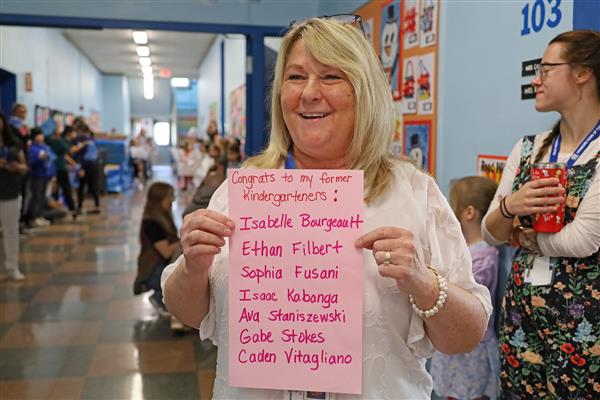 Congrats to my former
Kindergarteners:
Isabelle Bourgeault
Ethan Filbert
Sophia Fusani
Isaac Kabanga
Ava Staniszewski
Gabe Stokes
Caden Vitagliano
103